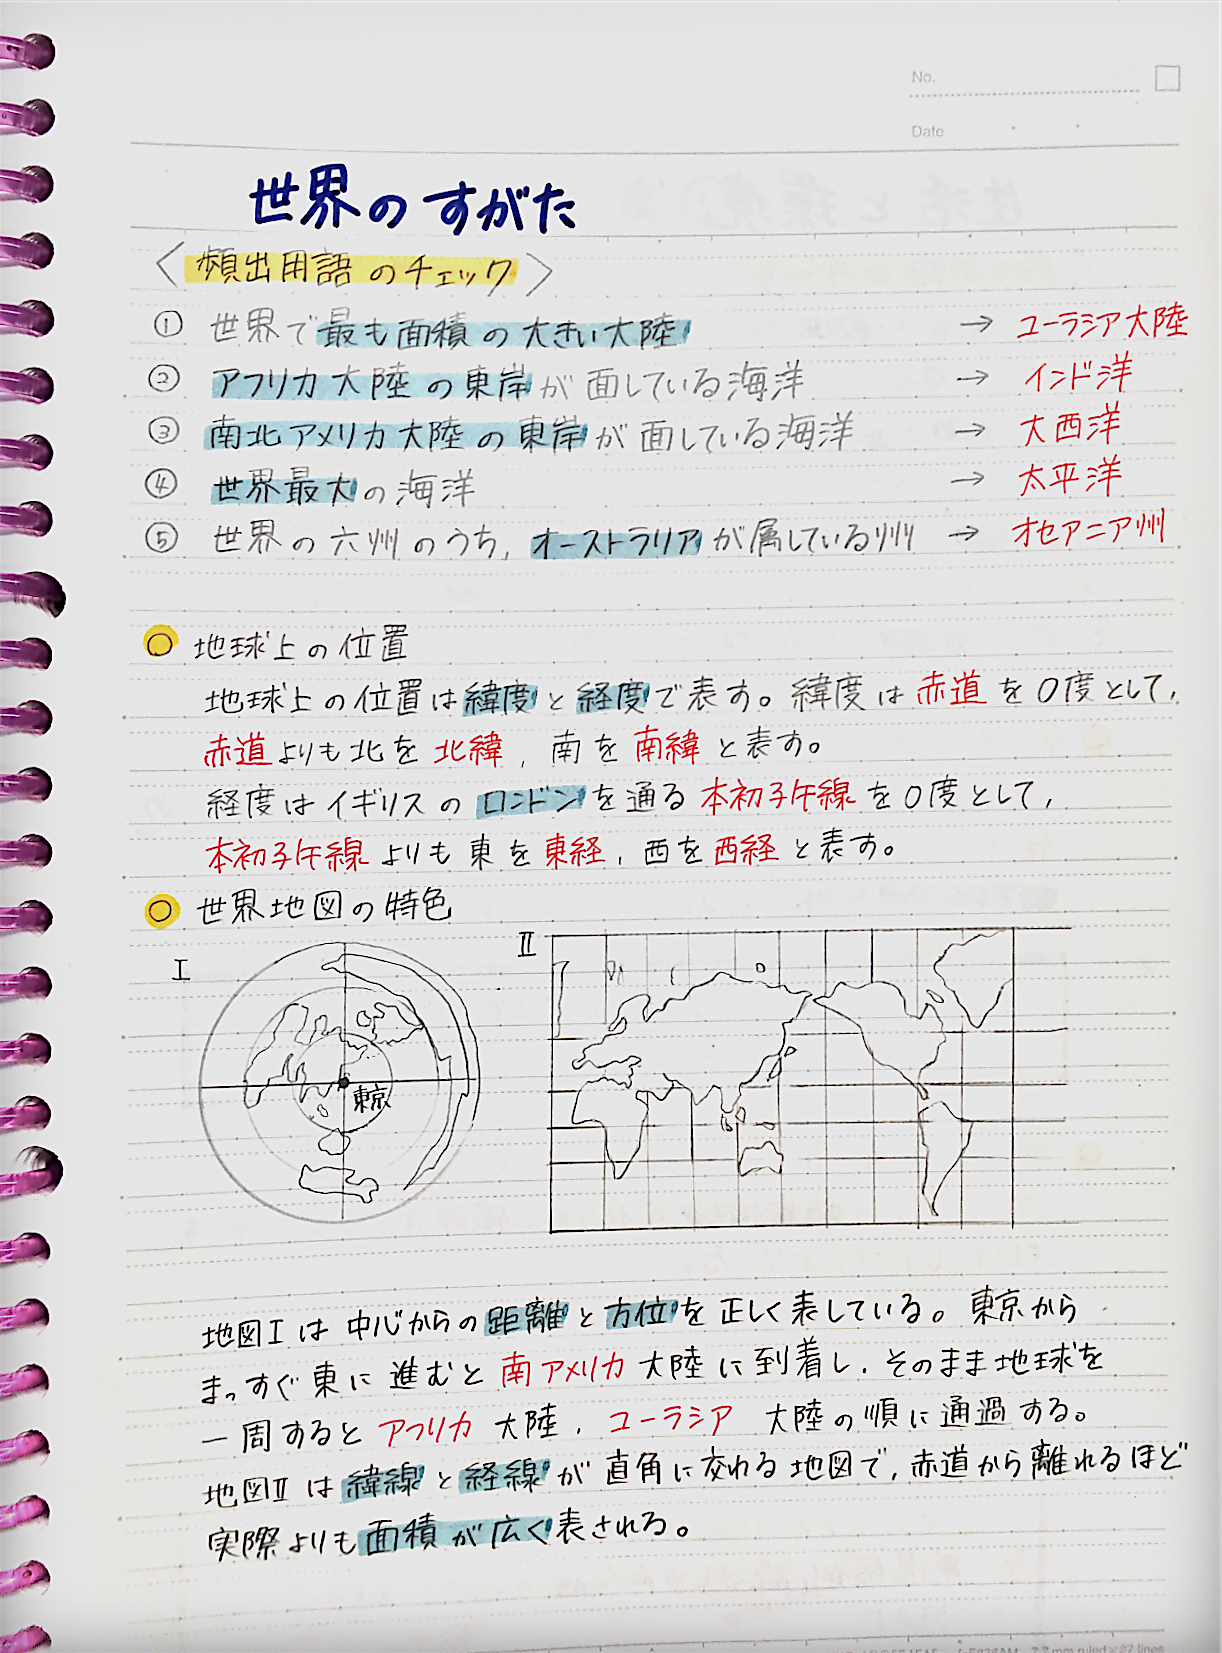 No.
Date
世界のすがた
〈頻出用語のチェック〉
① 世界で最も面積の大きい大陸 → ユーラシア大陸
② アフリカ大陸の東岸が面している海洋 → インド洋
③ 南北アメリカ大陸の東岸が面している海洋 → 大西洋
④ 世界最大の海洋 → 太平洋
⑤ 世界の六州のうち、オーストラリアが属している州 → オセアニア州
○ 地球上の位置
地球上の位置は緯度と経度で表す。緯度は赤道を0度として、
赤道よりも北を北緯、南を南緯と表す。
経度はイギリスのロンドンを通る本初子午線を0度として、
本初子午線よりも東を東経、西を西経と表す。
○ 世界地図の特色
I
II
東京
地図Iは中心からの距離と方位を正しく表している。東京から
まっすぐ東に進むと南アメリカ大陸に到着し、そのまま地球を
一周するとアフリカ大陸、ユーラシア大陸の順に通過する。
地図IIは緯線と経線が直角に交わる地図で、赤道から離れるほど
実際よりも面積が広く表される。
7.7 mm ruled × 27 lines